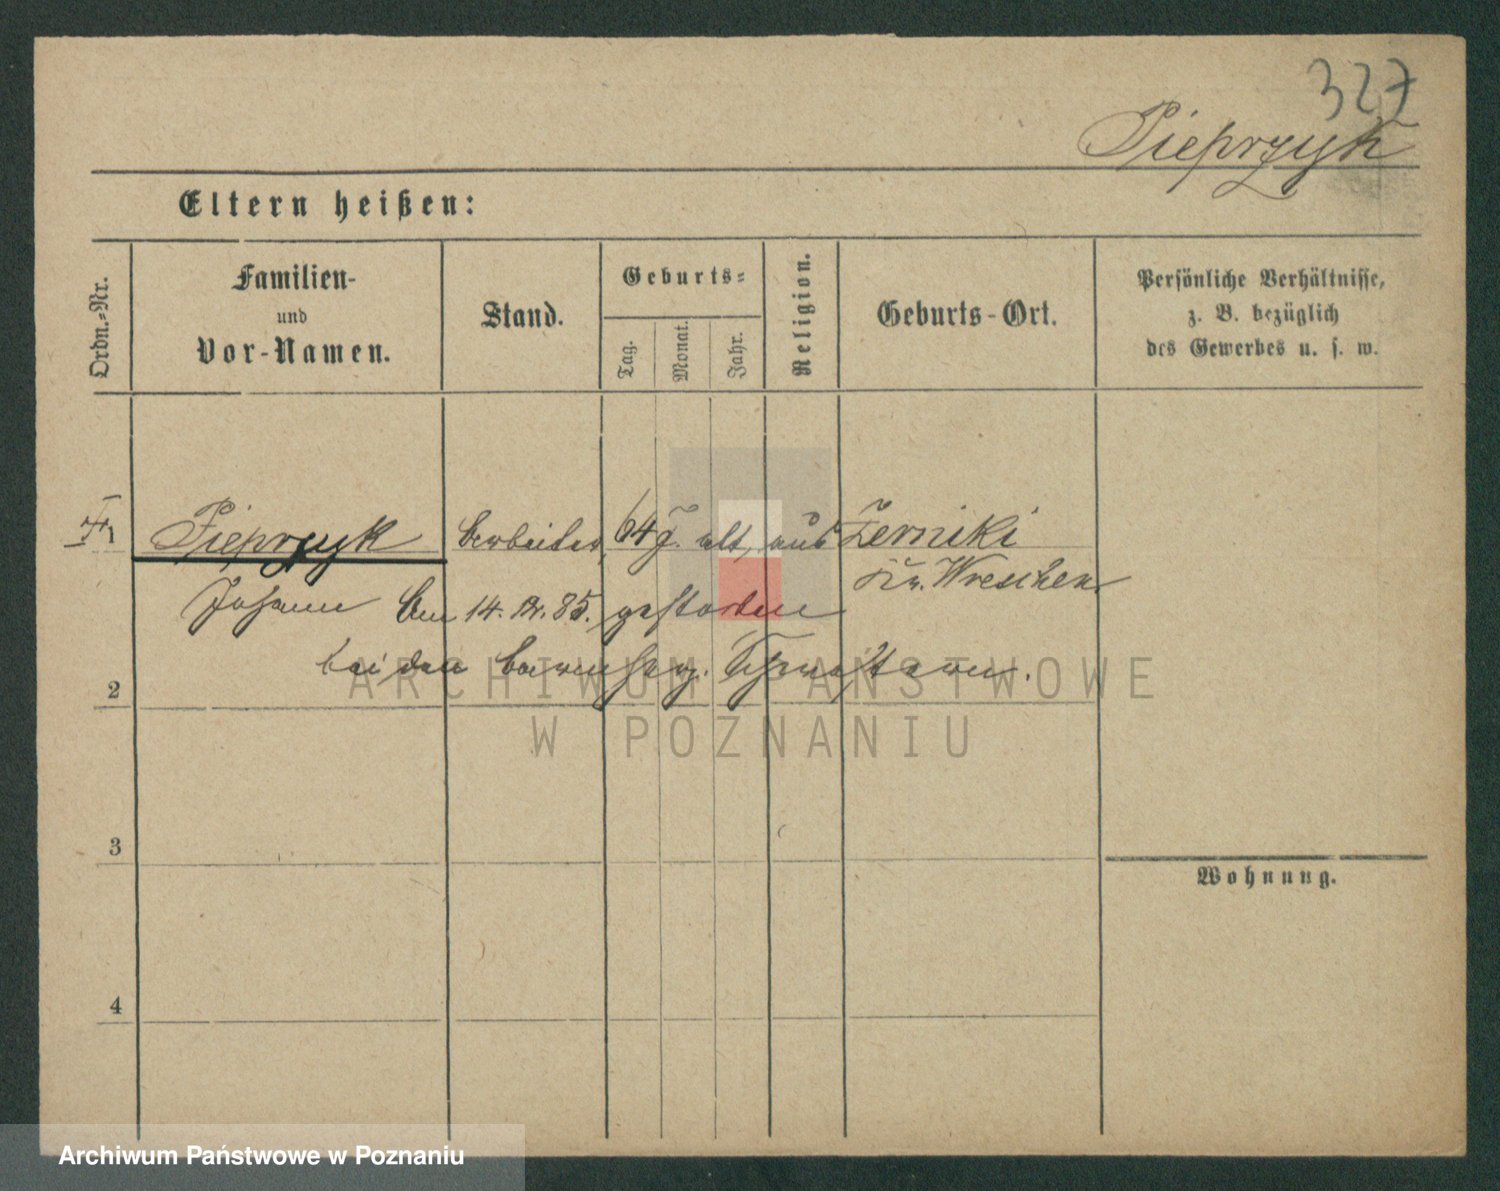 327
Pieprzyk
Eltern heißen:
Ordn.-Nr.
Familien-
und
Vor-Namen.
Stand.
Geburts-
Tag.
Monat.
Jahr.
Religion.
Geburts-Ort.
Persönliche Verhältnisse,
z. B. bezüglich
des Gewerbes u. s. w.
1 Pieprzyk Arbeiter, 64 J. alt, aus Zerniki
Kr. Wreschen
Johann Am 14. 12. 85. gestorben
bei den barmherz. Schwestern.
2
3
4
Wohnung.
ARCHIWUM PAŃSTWOWE
W POZNANIU
Archiwum Państwowe w Poznaniu